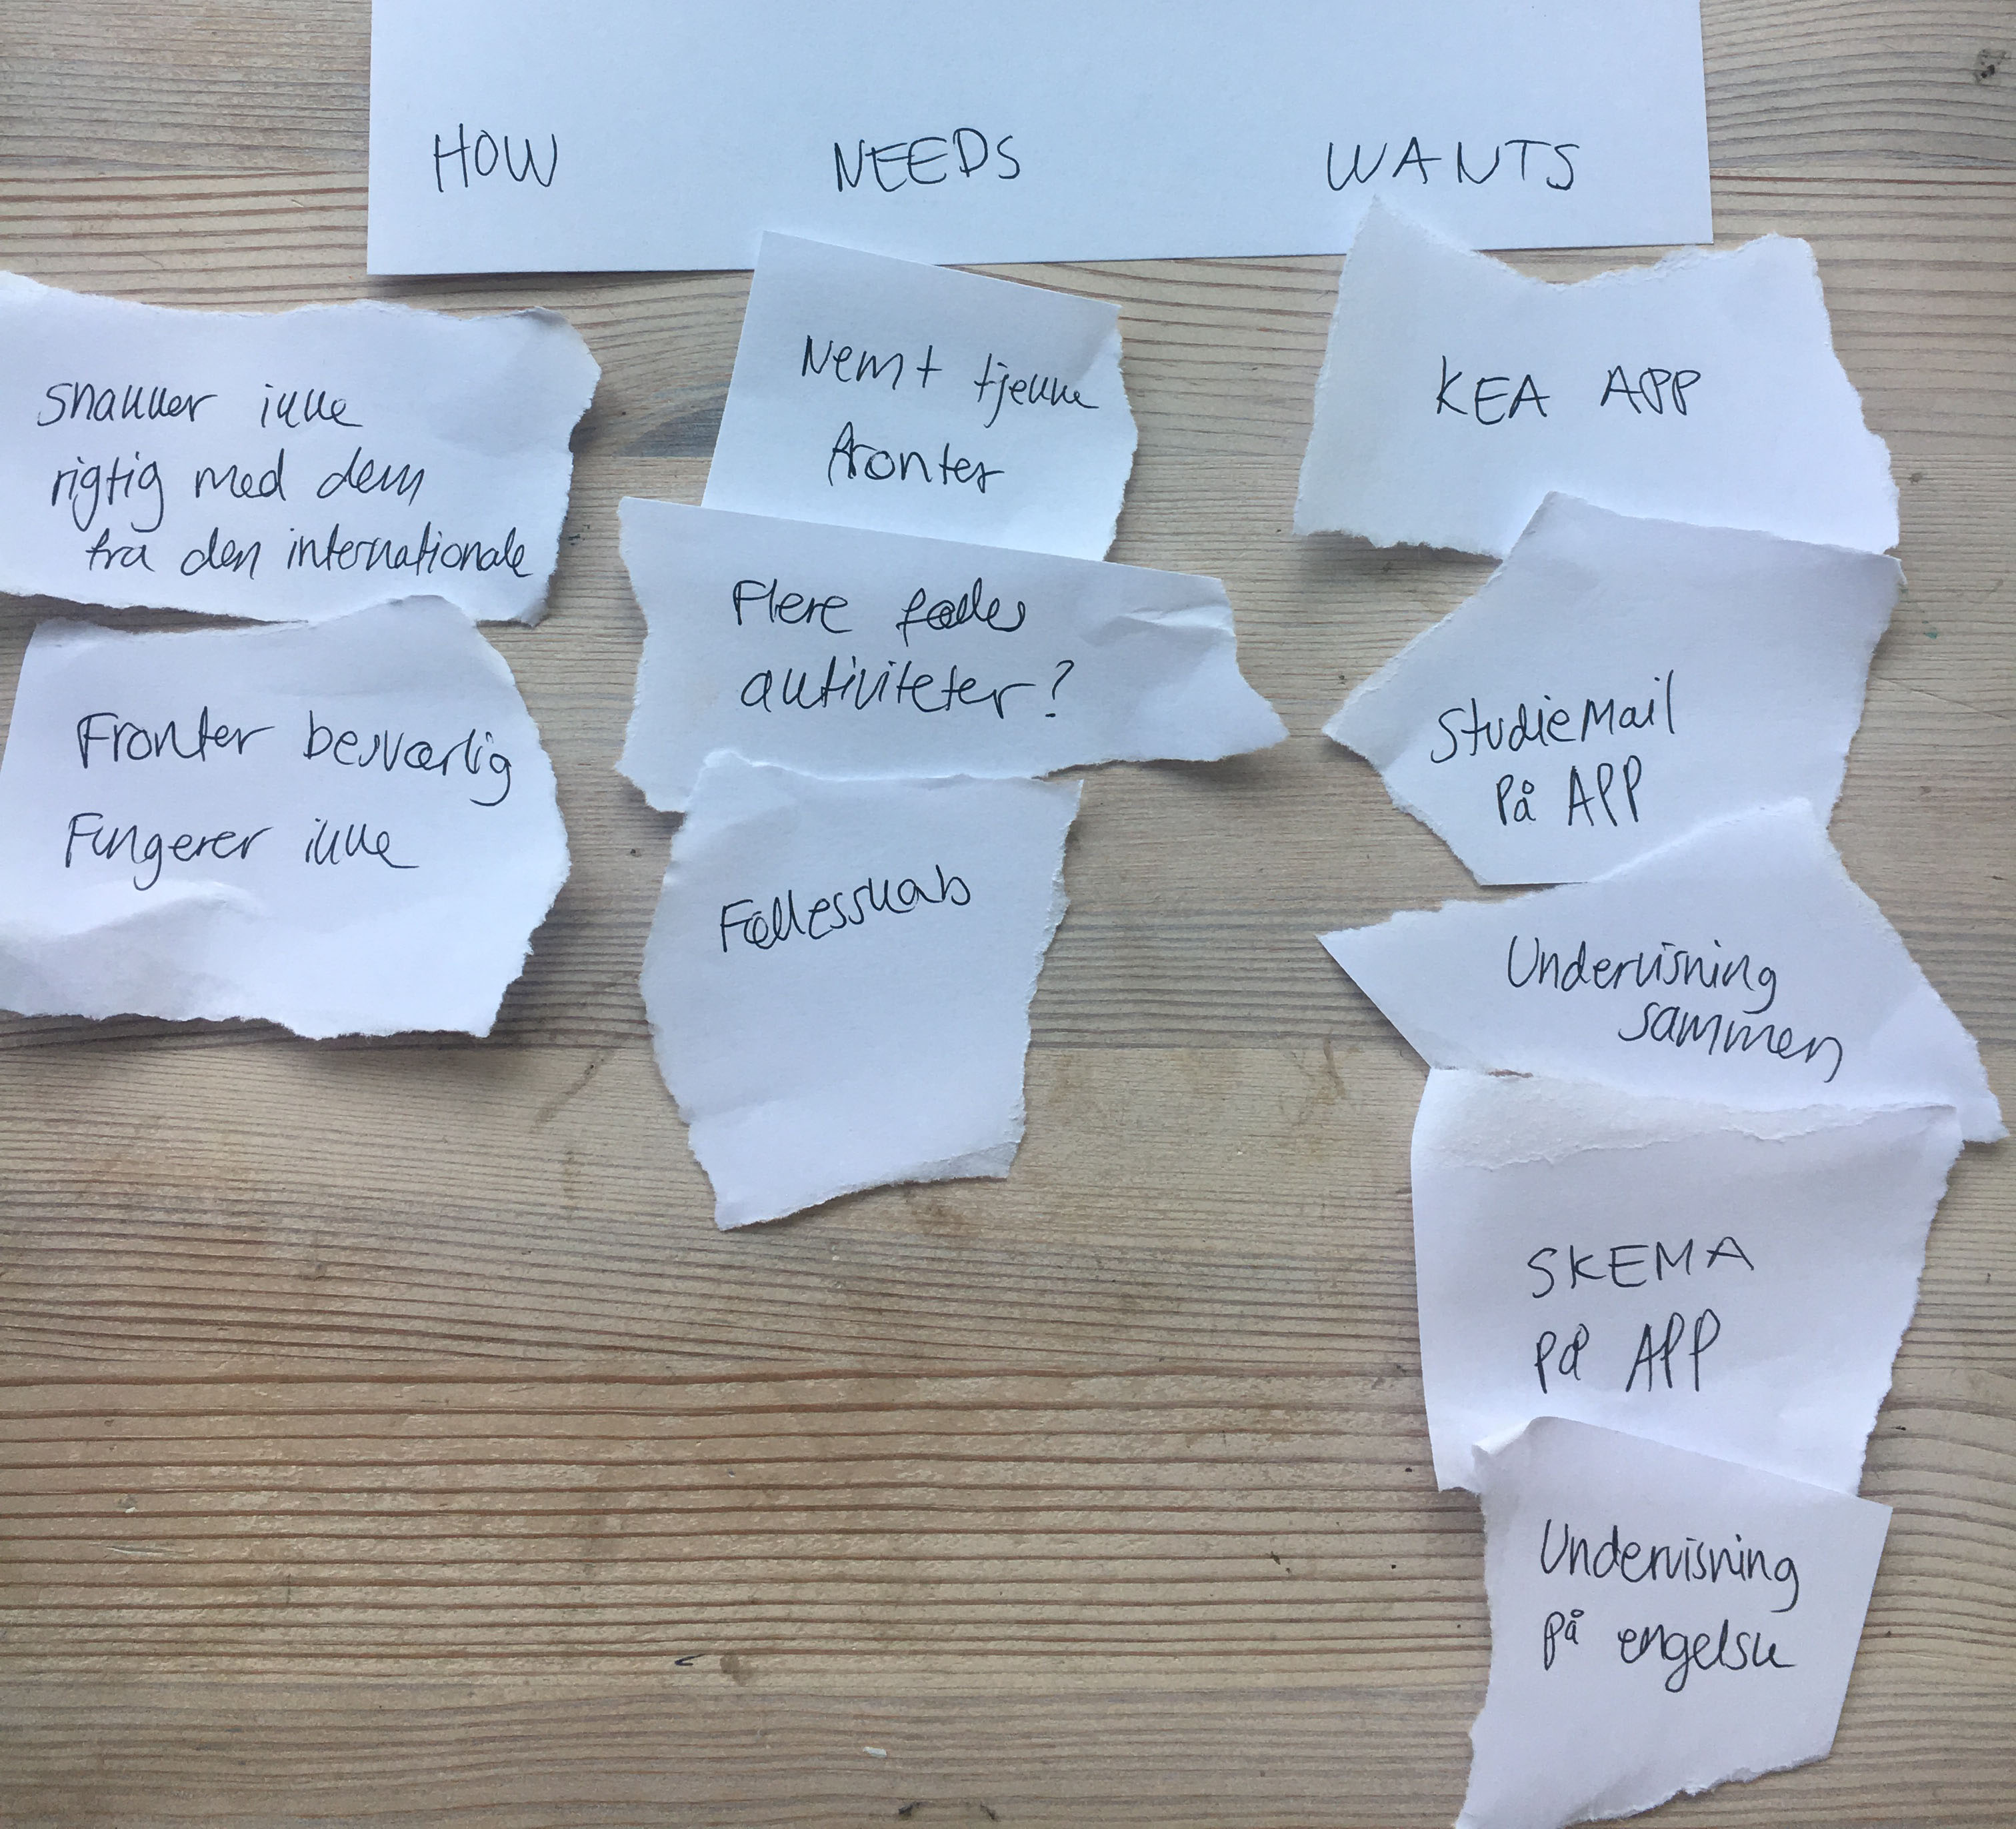 HOW
NEEDS
WANTS
snakker ikke
rigtig med dem
fra den internationale
Fronter besværlig
Fungerer ikke
Nemt tjekke
fronter
Flere fælles
aktiviteter?
Fællesskab
KEA APP
StudieMail
På APP
Undervisning
sammen
SKEMA
på APP
Undervisning
på engelsk